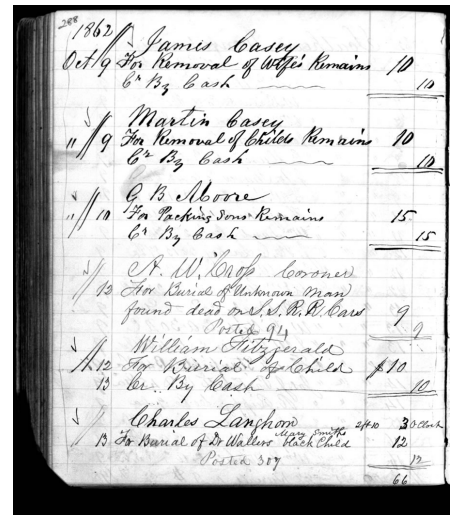 288
1862
James Casey
Oct 9 For Removal of Wife's Remains 10
Cr By Cash 10
Martin Casey
" 9 For Removal of Childs Remains 10
Cr By Cash 10
G B Moore
" 10 For Packing Sons Remains 15
Cr By Cash 15
A. W. Cross Coroner
12 For Burial of Unknown Man
found dead on S.S.R.R. Cars 9
Posted 94 9
William Fitzgerald
12 For Burial of Child $10
13 Cr. By Cash 10
Charles Langhorn 3 O clock
Mary Smiths
13 For Burial of Dr Wallers black Child 12
Posted 307 12
66